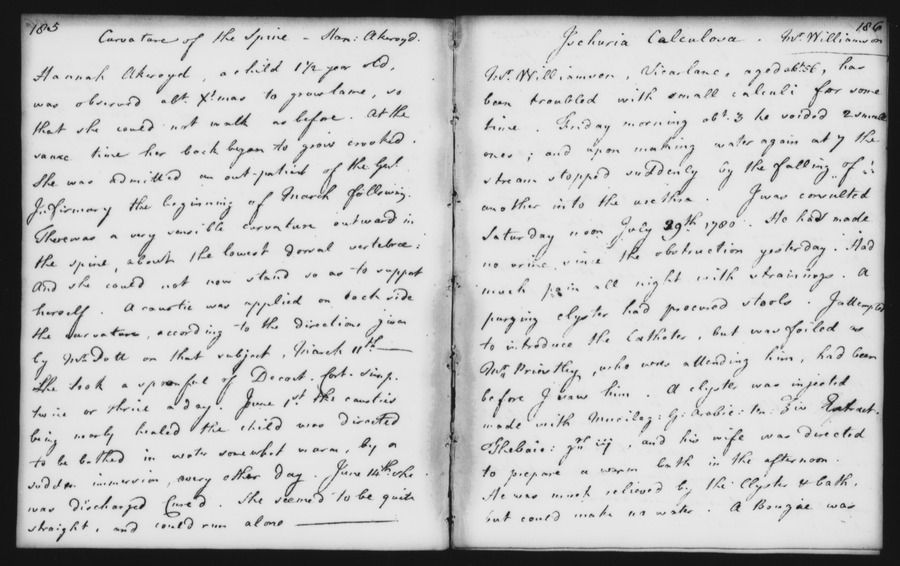 185
Curvature of the Spine - Han: Akeroyd.
Hannah Akeroyd, a child 1 1/2 year old,
was observed abt. Xtmas to grow lame, so
that she could not walk as before. At the
same time her back began to grow crooked.
She was admitted an out-patient of the Genl
Infirmary the beginning of March following.
There was a very sensible curvature outward in
the spine, about the lowest dorsal vertebræ:
And she could not now stand so as to support
herself. A caustic was applied on each side
the curvature, according to the directions given
by Mr Pott on that subject, March 11th —
She took a spoonful of Decoct. Cort. simp.
twice or thrice a day. June 1st the caustics
being nearly healed the child was directed
to be bathed in water somewhat warm, by a
sudden immersion, every other day. June 14th she
was discharged Cured. She seemed to be quite
straight, and could run alone —
186
Ischuria Calculosa. Mr. Williamson
Mr. Williamson, Vicarlane, aged abt. 56, has
been troubled with small calculi for some
time. Friday morning abt. 3 he voided 2 small
ones; and upon making water again at 7 the
stream stopped suddenly by the falling of
another into the urethra. I was consulted
Saturday noon July 29th 1780. He had made
no urine since the obstruction yesterday. Had
much pain all night with strainings. A
purging clyster had procured stools. I attempted
to introduce the Catheter, but was foiled as
Mr Priestley, who was attending him, had been
before I saw him. A clyster was injected
made with Mucilag: G: Arabic: Extract.
Thebaic: gr iij, and his wife was directed
to prepare a warm bath in the afternoon.
He was much relieved by the Clyster & bath,
but could make no water. A Bougie was